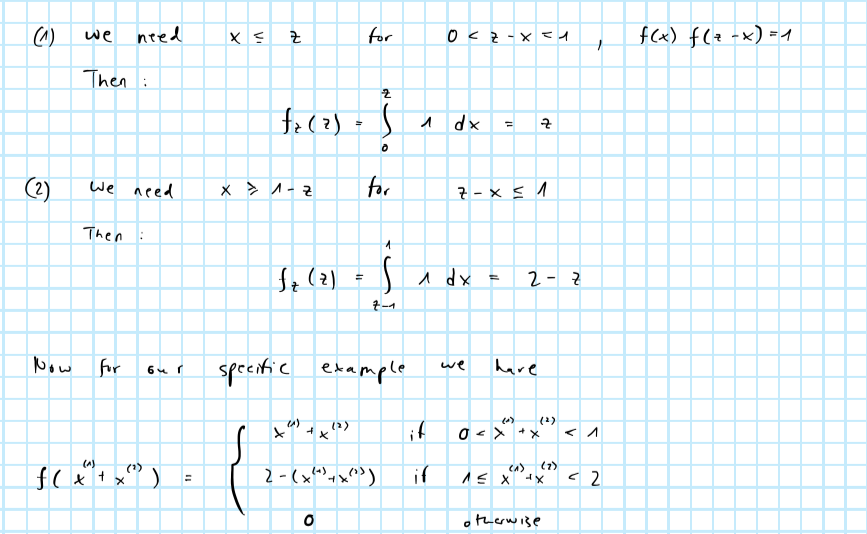 (1) we need x ≤ z for 0 < z - x < 1 , f(x) f(z - x) = 1
Then :
f_z(z) = ∫_0^z 1 dx = z
(2) we need x ≥ 1 - z for z - x ≤ 1
Then :
f_z(z) = ∫_{z-1}^1 1 dx = 2 - z
Now for our specific example we have
f( x^(1) + x^(2) ) = { x^(1) + x^(2) if 0 < x^(1) + x^(2) < 1
2 - (x^(1) + x^(2)) if 1 ≤ x^(1) + x^(2) < 2
0 otherwise